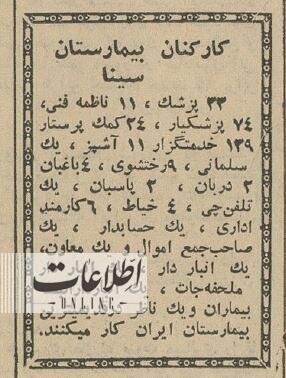 کارکنان بیمارستان
سینا
۳۳ پزشك ، ۱۱ ناظمه فنی،
۷۴ پزشکیار ، ۲۴ کمك پرستار
۱۳۹ خدمتگزار ۱۱ آشپز ، یك
سلمانی ، ۹ رختشوی ، ۴ باغبان
۲ دربان ، ۲ پاسبان ، یك
تلفن‌چی ، ۴ خیاط ، ۶ کارمند
اداری ، یك حسابدار ، یك
صاحب‌جمع اموال و یك معاون،
یك انبار دار
ملحفه‌جات ، یك
بیماران و یك ناظر
بیمارستان ایران کار میکنند.
اطلاعات